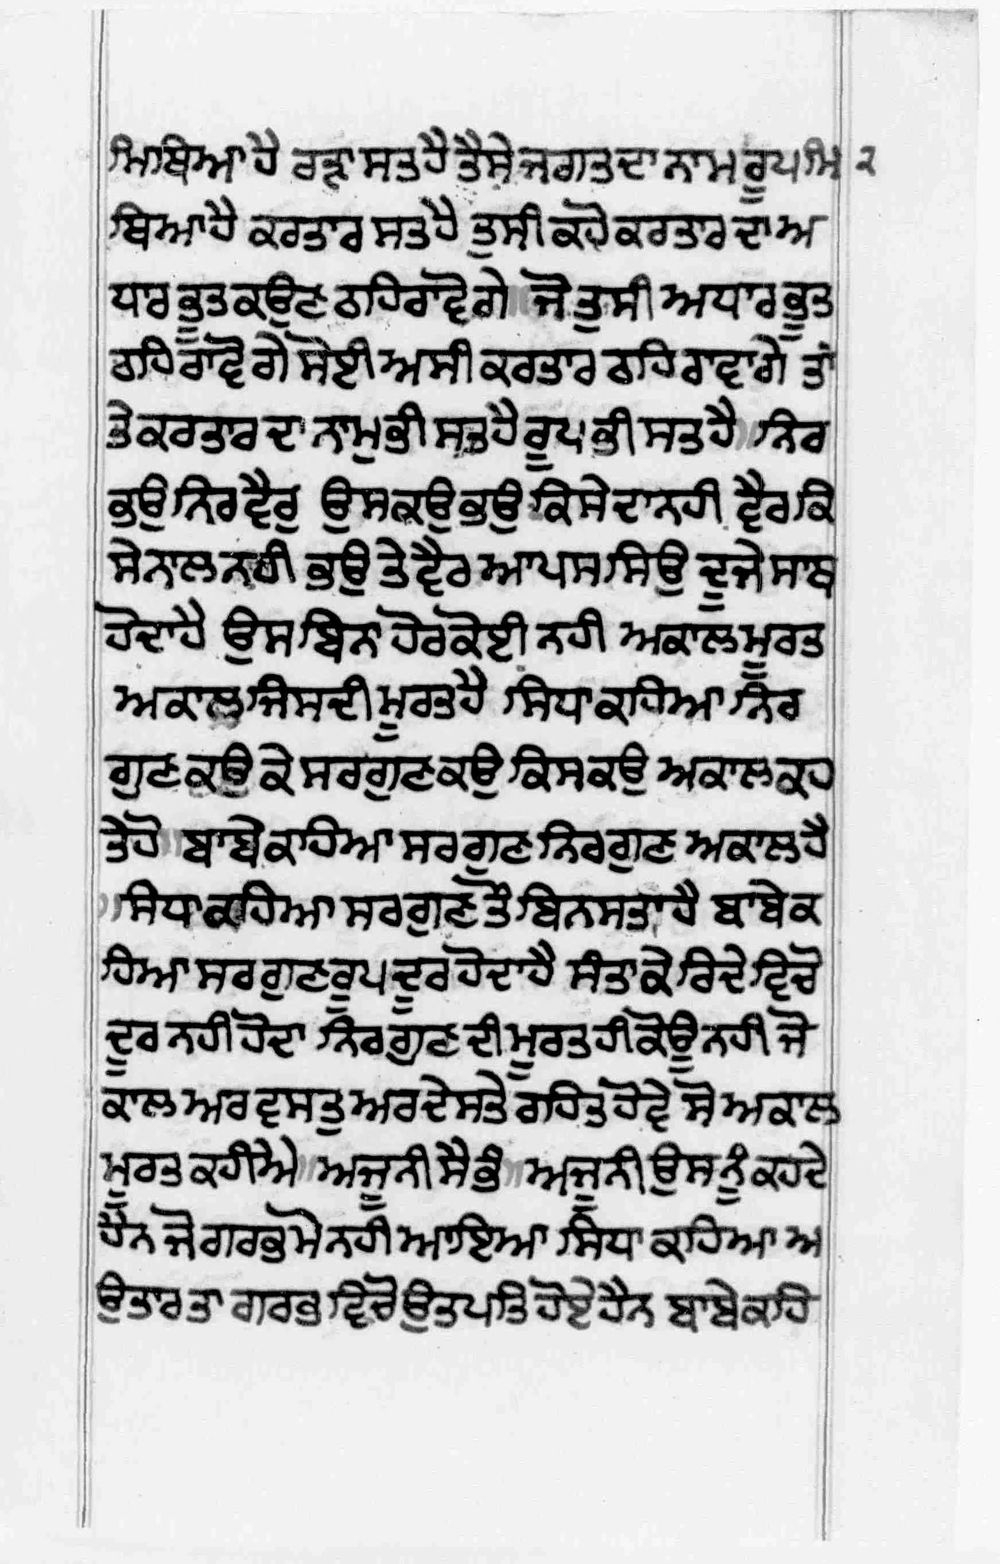 ਮਿਥਿਆ ਹੈ ਰਜੂ ਸਤ ਹੈ ਤੈਸੇ ਜਗਤ ਦਾ ਨਾਮ ਰੂਪ ਮਿ ੨
ਥਿਆ ਹੈ ਕਰਤਾਰ ਸਤ ਹੈ ਤੁਸੀ ਕਹੋ ਕਰਤਾਰ ਦਾ ਅ
ਧਾਰ ਭੂਤ ਕਉਣ ਠਹਿਰਾਵੋਗੇ ਜੋ ਤੁਸੀ ਅਧਾਰ ਭੂਤ
ਠਹਿਰਾਵੋਗੇ ਸੋਈ ਅਸੀ ਕਰਤਾਰ ਠਹਿਰਾਵਾਗੇ ਤਾਂ
ਤੇ ਕਰਤਾਰ ਦਾ ਨਾਮੁ ਭੀ ਸਤ ਹੈ ਰੂਪ ਭੀ ਸਤ ਹੈ ਨਿਰ
ਭਉ ਨਿਰਵੈਰੁ ਉਸ ਕਉ ਭਉ ਕਿਸੇ ਦਾ ਨਹੀ ਵੈਰ ਕਿ
ਸੇ ਨਾਲ ਨਹੀ ਭਉ ਤੇ ਵੈਰ ਆਪਸ ਸਿਉ ਦੂਜੇ ਸਾਥ
ਹੋਦਾ ਹੈ ਉਸ ਬਿਨਾ ਹੋਰ ਕੋਈ ਨਹੀ ਅਕਾਲ ਮੂਰਤ
ਅਕਾਲ ਜਿਸ ਦੀ ਮੂਰਤ ਹੈ ਸਿਧਾ ਕਹਿਆ ਨਿਰ
ਗੁਣ ਕਉ ਕੇ ਸਰਗੁਣ ਕਉ ਕਿਸ ਕਉ ਅਕਾਲ ਕਹ
ਤੇ ਹੋ ਬਾਬੇ ਕਹਿਆ ਸਰਗੁਣ ਨਿਰਗੁਣ ਅਕਾਲ ਹੈ
ਸਿਧਾ ਕਹਿਆ ਸਰਗੁਣ ਤੌ ਬਿਨਸਤਾ ਹੈ ਬਾਬੇ ਕ
ਹਿਆ ਸਰਗੁਣ ਰੂਪ ਦੂਰ ਹੋਦਾ ਹੈ ਸੰਤਾ ਕੇ ਰਿਦੇ ਵਿਚੋ
ਦੂਰ ਨਹੀ ਹੋਦਾ ਨਿਰਗੁਣ ਦੀ ਮੂਰਤ ਹੀ ਕੋਊ ਨਹੀ ਜੋ
ਕਾਲ ਅਰ ਵਸਤੁ ਅਰ ਦੇਸ ਤੇ ਰਹਿਤ ਹੋਵੇ ਸੋ ਅਕਾਲ
ਮੂਰਤ ਕਹੀਐ ਅਜੂਨੀ ਸੈਭੰ ਅਜੂਨੀ ਉਸ ਨੂੰ ਕਹਦੇ
ਹੈਨ ਜੋ ਗਰਭ ਮੋ ਨਹੀ ਆਇਆ ਸਿਧਾ ਕਹਿਆ ਅ
ਉਤਾਰ ਤਾ ਗਰਭ ਵਿਚੋ ਉਤਪਤਿ ਹੋਏ ਹੈਨ ਬਾਬੇ ਕਹਿ